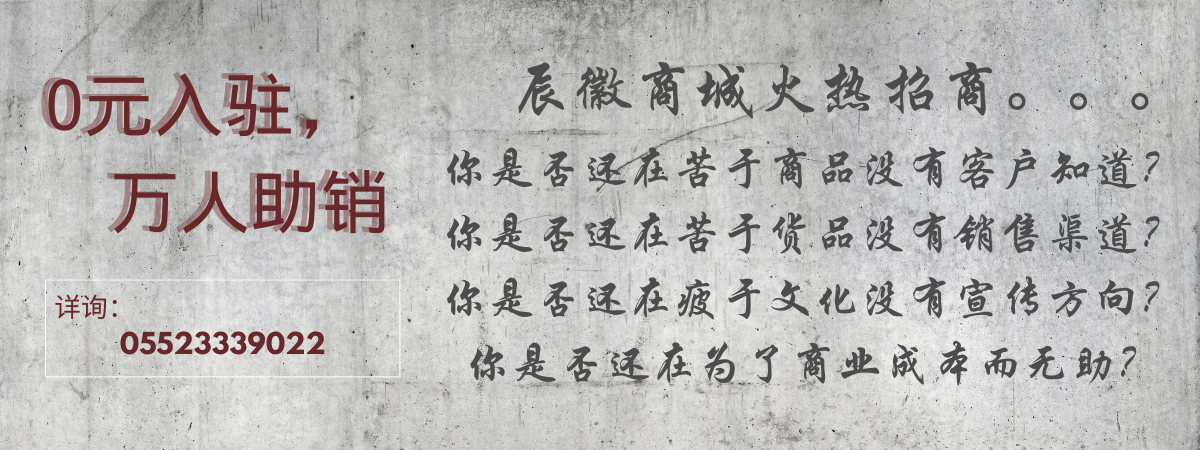 0元入驻，
万人助销
详询：
05523339022
辰徽商城火热招商。。。
你是否还在苦于商品没有客户知道？
你是否还在苦于货品没有销售渠道？
你是否还在疲于文化没有宣传方向？
你是否还在为了商业成本而无助？